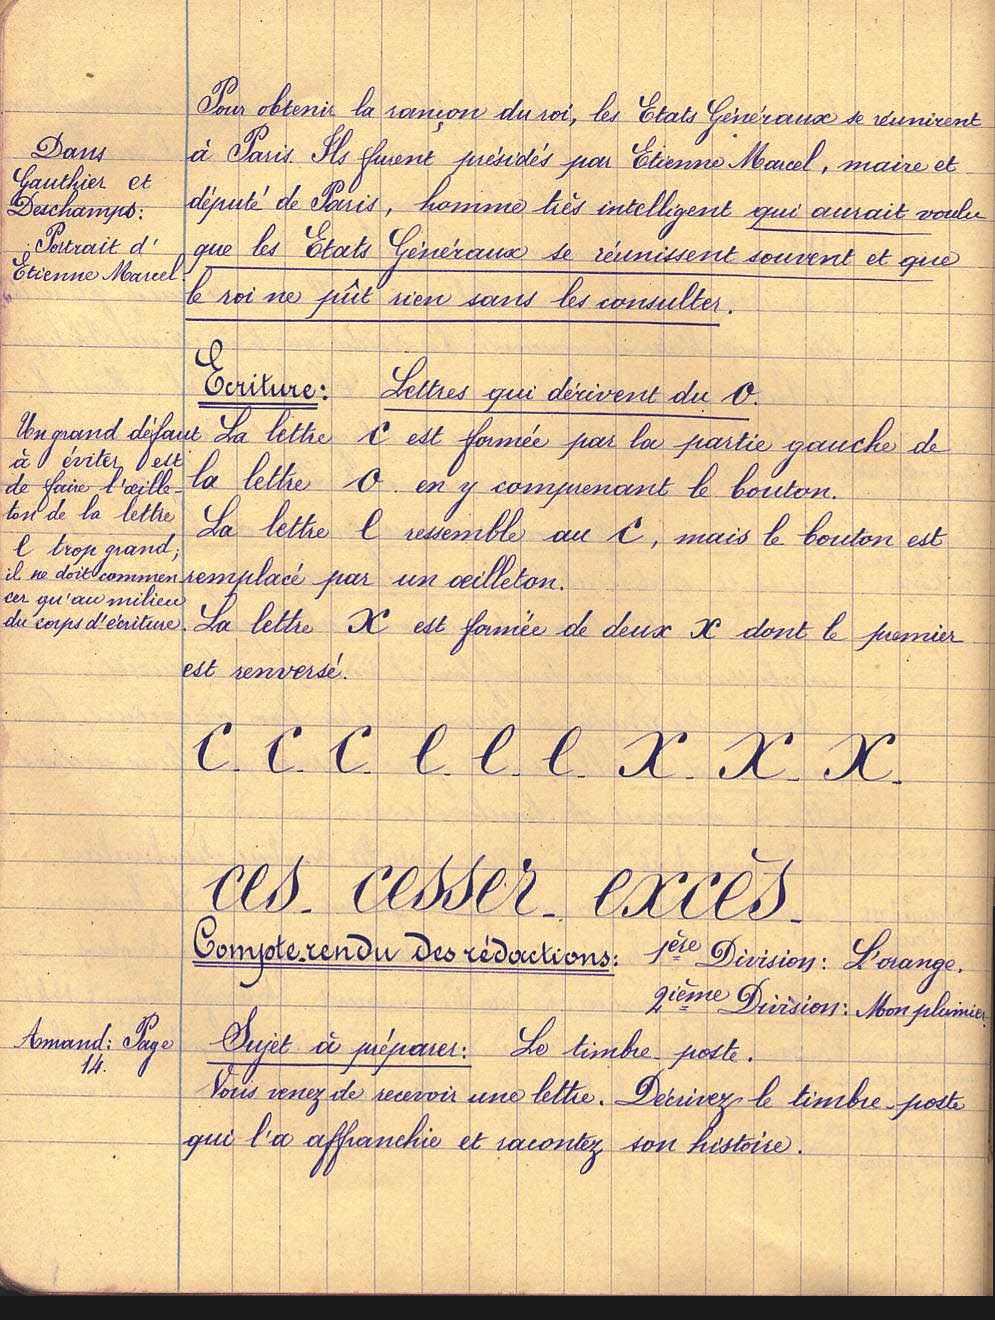 Pour obtenir la rançon du roi, les Etats Généraux se réunirent
à Paris. Ils furent présidés par Etienne Marcel, maire et
député de Paris, homme très intelligent qui aurait voulu
que les Etats Généraux se réunissent souvent et que
le roi ne pût rien sans les consulter.
Dans
Gauthier et
Deschamps:
Portrait d'
Etienne Marcel
Ecriture: Lettres qui dérivent du o.
La lettre c est formée par la partie gauche de
la lettre o en y comprenant le bouton.
La lettre l ressemble au c, mais le bouton est
remplacé par un œilleton.
La lettre x est formée de deux x dont le premier
est renversé.
Un grand défaut
à éviter est
de faire l'œille-
ton de la lettre
l trop grand;
il ne doit commen-
cer qu'au milieu
du corps d'écriture.
c. c. c. l. l. l. x. x. x.
ces. cesser. excès.
Compte-rendu des rédactions: 1ère Division: L'orange.
2ième Division: Mon plumier.
Amand: Page
14.
Sujet à préparer: Le timbre-poste.
Vous venez de recevoir une lettre. Décrivez le timbre-poste
qui l'a affranchie et racontez son histoire.